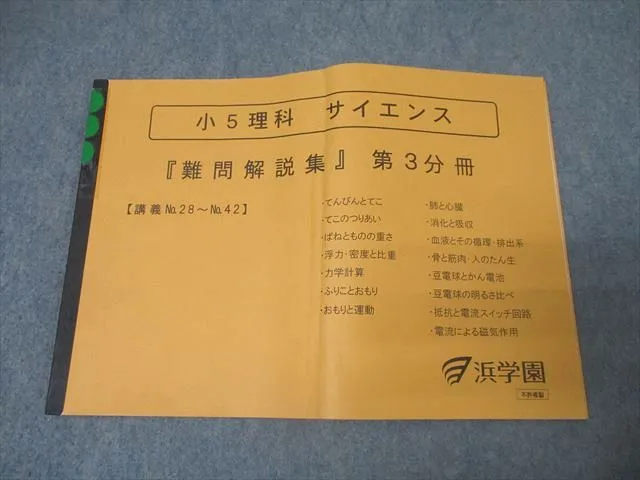 小5理科 サイエンス
『難問解説集』 第3分冊
【講義No.28～No.42】
・てんびんとてこ
・てこのつりあい
・ばねとものの重さ
・浮力・密度と比重
・力学計算
・ふりことおもり
・おもりと運動
・肺と心臓
・消化と吸収
・血液とその循環・排出系
・骨と筋肉・人のたん生
・豆電球とかん電池
・豆電球の明るさ比べ
・抵抗と電流スイッチ回路
・電流による磁気作用
浜学園
不許複製